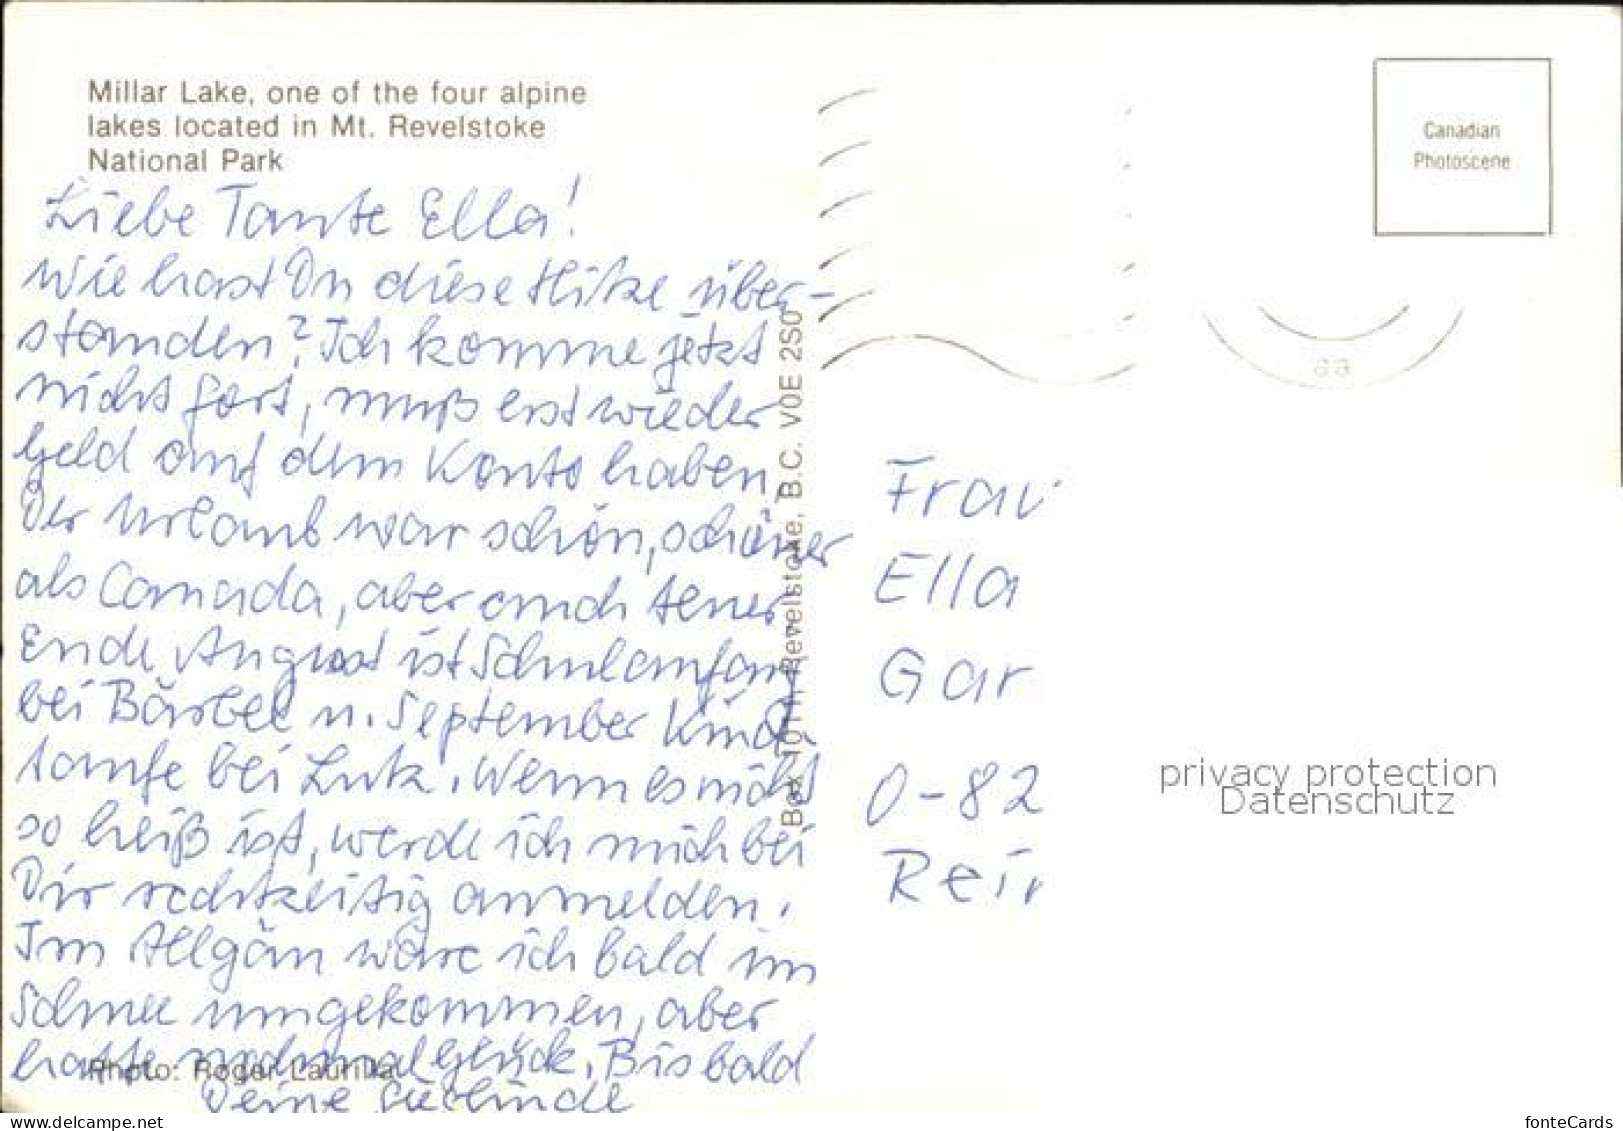 Millar Lake, one of the four alpine
lakes located in Mt. Revelstoke
National Park
Liebe Tante Ella!
Wie hast Du diese Hitze über-
standen? Ich komme jetzt
nicht fort, muß erst wieder
Geld auf dem Konto haben.
Der Urlaub war schön, schöner
als Canada, aber auch teuer.
Ende August ist Schulanfang
bei Bärbel u. September Kind
taufe bei Lutz. Wenn es nicht
so heiß ist, werde ich mich bei
Dir rechtzeitig anmelden.
Im Allgäu wäre ich bald im
Schnee umgekommen, aber
hatte nochmal Glück. Bis bald
Deine
Photo: Roger Laurilla
Revelstoke, B.C. V0E 2S0
Canadian
Photoscene
Frau
Ella
Gar
O-82
Rei
privacy protection
Datenschutz
www.delcampe.net
fonteCards